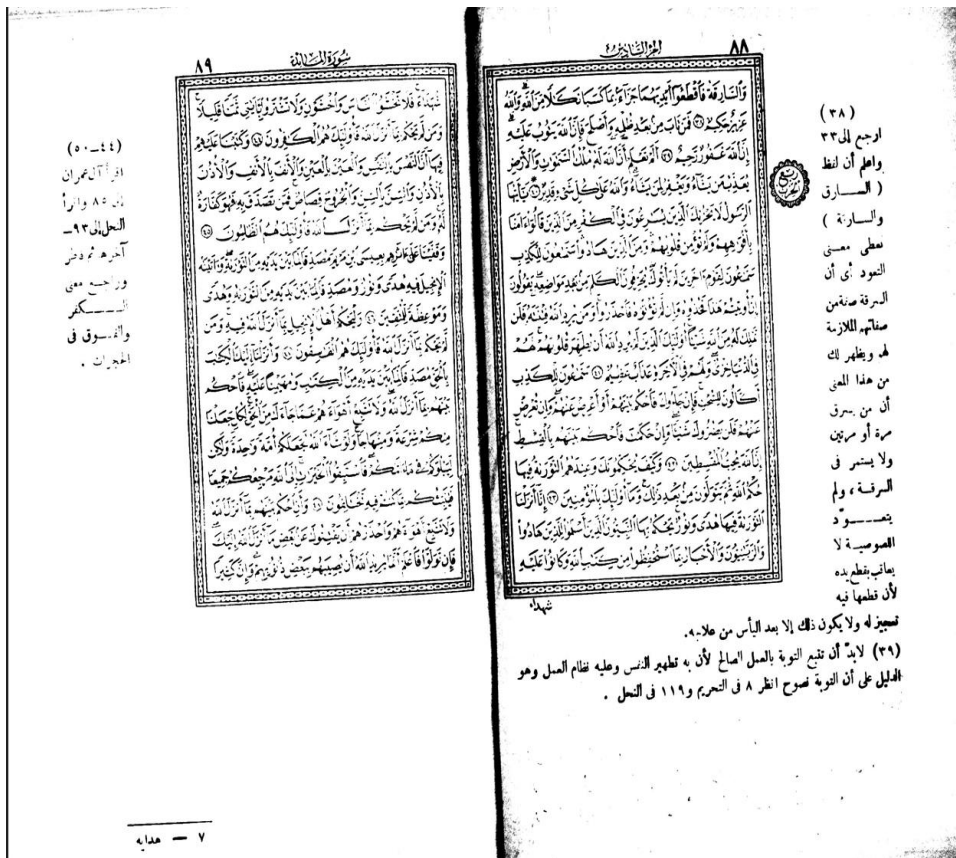 ٨٨
الجزء السادس
وَالسَّارِقَةُ فَاقْطَعُوا أَيْدِيَهُمَا جَزَاءً بِمَا كَسَبَا نَكَالًا مِنَ اللَّهِ وَاللَّهُ
عَزِيزٌ حَكِيمٌ ٣٨ فَمَنْ تَابَ مِنْ بَعْدِ ظُلْمِهِ وَأَصْلَحَ فَإِنَّ اللَّهَ يَتُوبُ عَلَيْهِ
إِنَّ اللَّهَ غَفُورٌ رَحِيمٌ ٣٩ أَلَمْ تَعْلَمْ أَنَّ اللَّهَ لَهُ مُلْكُ السَّمَٰوَاتِ وَالْأَرْضِ
يُعَذِّبُ مَنْ يَشَاءُ وَيَغْفِرُ لِمَنْ يَشَاءُ وَاللَّهُ عَلَىٰ كُلِّ شَيْءٍ قَدِيرٌ ٤٠ يَٰأَيُّهَا
الرَّسُولُ لَا يَحْزُنْكَ الَّذِينَ يُسَٰرِعُونَ فِي الْكُفْرِ مِنَ الَّذِينَ قَالُوا ءَامَنَّا
بِأَفْوَٰهِهِمْ وَلَمْ تُؤْمِنْ قُلُوبُهُمْ وَمِنَ الَّذِينَ هَادُوا سَمَّٰعُونَ لِلْكَذِبِ
سَمَّٰعُونَ لِقَوْمٍ ءَاخَرِينَ لَمْ يَأْتُوكَ يُحَرِّفُونَ الْكَلِمَ مِنْ بَعْدِ مَوَاضِعِهِ يَقُولُونَ
إِنْ أُوتِيتُمْ هَٰذَا فَخُذُوهُ وَإِنْ لَمْ تُؤْتَوْهُ فَاحْذَرُوا وَمَنْ يُرِدِ اللَّهُ فِتْنَتَهُ فَلَنْ
تَمْلِكَ لَهُ مِنَ اللَّهِ شَيْئًا أُولَٰئِكَ الَّذِينَ لَمْ يُرِدِ اللَّهُ أَنْ يُطَهِّرَ قُلُوبَهُمْ لَهُمْ
فِي الدُّنْيَا خِزْيٌ وَلَهُمْ فِي الْآخِرَةِ عَذَابٌ عَظِيمٌ ٤١ سَمَّٰعُونَ لِلْكَذِبِ
أَكَّٰلُونَ لِلسُّحْتِ فَإِنْ جَاءُوكَ فَاحْكُمْ بَيْنَهُمْ أَوْ أَعْرِضْ عَنْهُمْ وَإِنْ تُعْرِضْ
عَنْهُمْ فَلَنْ يَضُرُّوكَ شَيْئًا وَإِنْ حَكَمْتَ فَاحْكُمْ بَيْنَهُمْ بِالْقِسْطِ
إِنَّ اللَّهَ يُحِبُّ الْمُقْسِطِينَ ٤٢ وَكَيْفَ يُحَكِّمُونَكَ وَعِنْدَهُمُ التَّوْرَىٰةُ فِيهَا
حُكْمُ اللَّهِ ثُمَّ يَتَوَلَّوْنَ مِنْ بَعْدِ ذَٰلِكَ وَمَا أُولَٰئِكَ بِالْمُؤْمِنِينَ ٤٣ إِنَّا أَنْزَلْنَا
التَّوْرَىٰةَ فِيهَا هُدًى وَنُورٌ يَحْكُمُ بِهَا النَّبِيُّونَ الَّذِينَ أَسْلَمُوا لِلَّذِينَ هَادُوا
وَالرَّبَّٰنِيُّونَ وَالْأَحْبَارُ بِمَا اسْتُحْفِظُوا مِنْ كِتَٰبِ اللَّهِ وَكَانُوا عَلَيْهِ
شهداء
(٣٨)
ارجع إلى ٣٣
واعلم أن لفظ
( السارق
والسارقة )
يعطى معنى
التعود أى أن
السرقة صفة من
صفاتهم الملازمة
لهم ويظهر لك
من هذا المعنى
أن من يسرق
مرة أو مرتين
ولا يستمر فى
السرقة ، ولم
يتعوّد
اللصوصية لا
يعاقب بقطع يده
لأن قطعها فيه
تعجيز له ولا يكون ذلك إلا بعد اليأس من علاجه.
(٣٩) لابدّ أن تتبع التوبة بالعمل الصالح لأن به تطهير النفس وعليه نظام العمل وهو
الدليل على أن التوبة نصوح انظر ٨ فى التحريم و١١٩ فى النحل .
سورة المائدة
٨٩
شُهَدَاءَ فَلَا تَخْشَوُا النَّاسَ وَاخْشَوْنِ وَلَا تَشْتَرُوا بِـَٔايَٰتِي ثَمَنًا قَلِيلًا
وَمَنْ لَمْ يَحْكُمْ بِمَا أَنْزَلَ اللَّهُ فَأُولَٰئِكَ هُمُ الْكَٰفِرُونَ ٤٤ وَكَتَبْنَا عَلَيْهِمْ
فِيهَا أَنَّ النَّفْسَ بِالنَّفْسِ وَالْعَيْنَ بِالْعَيْنِ وَالْأَنْفَ بِالْأَنْفِ وَالْأُذُنَ
بِالْأُذُنِ وَالسِّنَّ بِالسِّنِّ وَالْجُرُوحَ قِصَاصٌ فَمَنْ تَصَدَّقَ بِهِ فَهُوَ كَفَّارَةٌ
لَهُ وَمَنْ لَمْ يَحْكُمْ بِمَا أَنْزَلَ اللَّهُ فَأُولَٰئِكَ هُمُ الظَّٰلِمُونَ ٤٥
وَقَفَّيْنَا عَلَىٰ ءَاثَٰرِهِمْ بِعِيسَى ابْنِ مَرْيَمَ مُصَدِّقًا لِمَا بَيْنَ يَدَيْهِ مِنَ التَّوْرَىٰةِ وَءَاتَيْنَٰهُ
الْإِنْجِيلَ فِيهِ هُدًى وَنُورٌ وَمُصَدِّقًا لِمَا بَيْنَ يَدَيْهِ مِنَ التَّوْرَىٰةِ وَهُدًى
وَمَوْعِظَةً لِلْمُتَّقِينَ ٤٦ وَلْيَحْكُمْ أَهْلُ الْإِنْجِيلِ بِمَا أَنْزَلَ اللَّهُ فِيهِ وَمَنْ
لَمْ يَحْكُمْ بِمَا أَنْزَلَ اللَّهُ فَأُولَٰئِكَ هُمُ الْفَٰسِقُونَ ٤٧ وَأَنْزَلْنَا إِلَيْكَ الْكِتَٰبَ
بِالْحَقِّ مُصَدِّقًا لِمَا بَيْنَ يَدَيْهِ مِنَ الْكِتَٰبِ وَمُهَيْمِنًا عَلَيْهِ فَاحْكُمْ
بَيْنَهُمْ بِمَا أَنْزَلَ اللَّهُ وَلَا تَتَّبِعْ أَهْوَاءَهُمْ عَمَّا جَاءَكَ مِنَ الْحَقِّ لِكُلٍّ جَعَلْنَا
مِنْكُمْ شِرْعَةً وَمِنْهَاجًا وَلَوْ شَاءَ اللَّهُ لَجَعَلَكُمْ أُمَّةً وَٰحِدَةً وَلَٰكِنْ
لِيَبْلُوَكُمْ فِي مَا ءَاتَىٰكُمْ فَاسْتَبِقُوا الْخَيْرَٰتِ إِلَى اللَّهِ مَرْجِعُكُمْ جَمِيعًا
فَيُنَبِّئُكُمْ بِمَا كُنْتُمْ فِيهِ تَخْتَلِفُونَ ٤٨ وَأَنِ احْكُمْ بَيْنَهُمْ بِمَا أَنْزَلَ اللَّهُ
وَلَا تَتَّبِعْ أَهْوَاءَهُمْ وَاحْذَرْهُمْ أَنْ يَفْتِنُوكَ عَنْ بَعْضِ مَا أَنْزَلَ اللَّهُ إِلَيْكَ
فَإِنْ تَوَلَّوْا فَاعْلَمْ أَنَّمَا يُرِيدُ اللَّهُ أَنْ يُصِيبَهُمْ بِبَعْضِ ذُنُوبِهِمْ وَإِنَّ كَثِيرًا
(٤٤ــ٥٠)
اقرأ آل عمران
إلى ٨٥ واقرأ
النحل إلى ٩٣ــ
آخرها ثم
وراجع معنى
الكفر
والفسوق فى
الحجرات .
٧ — هدايه